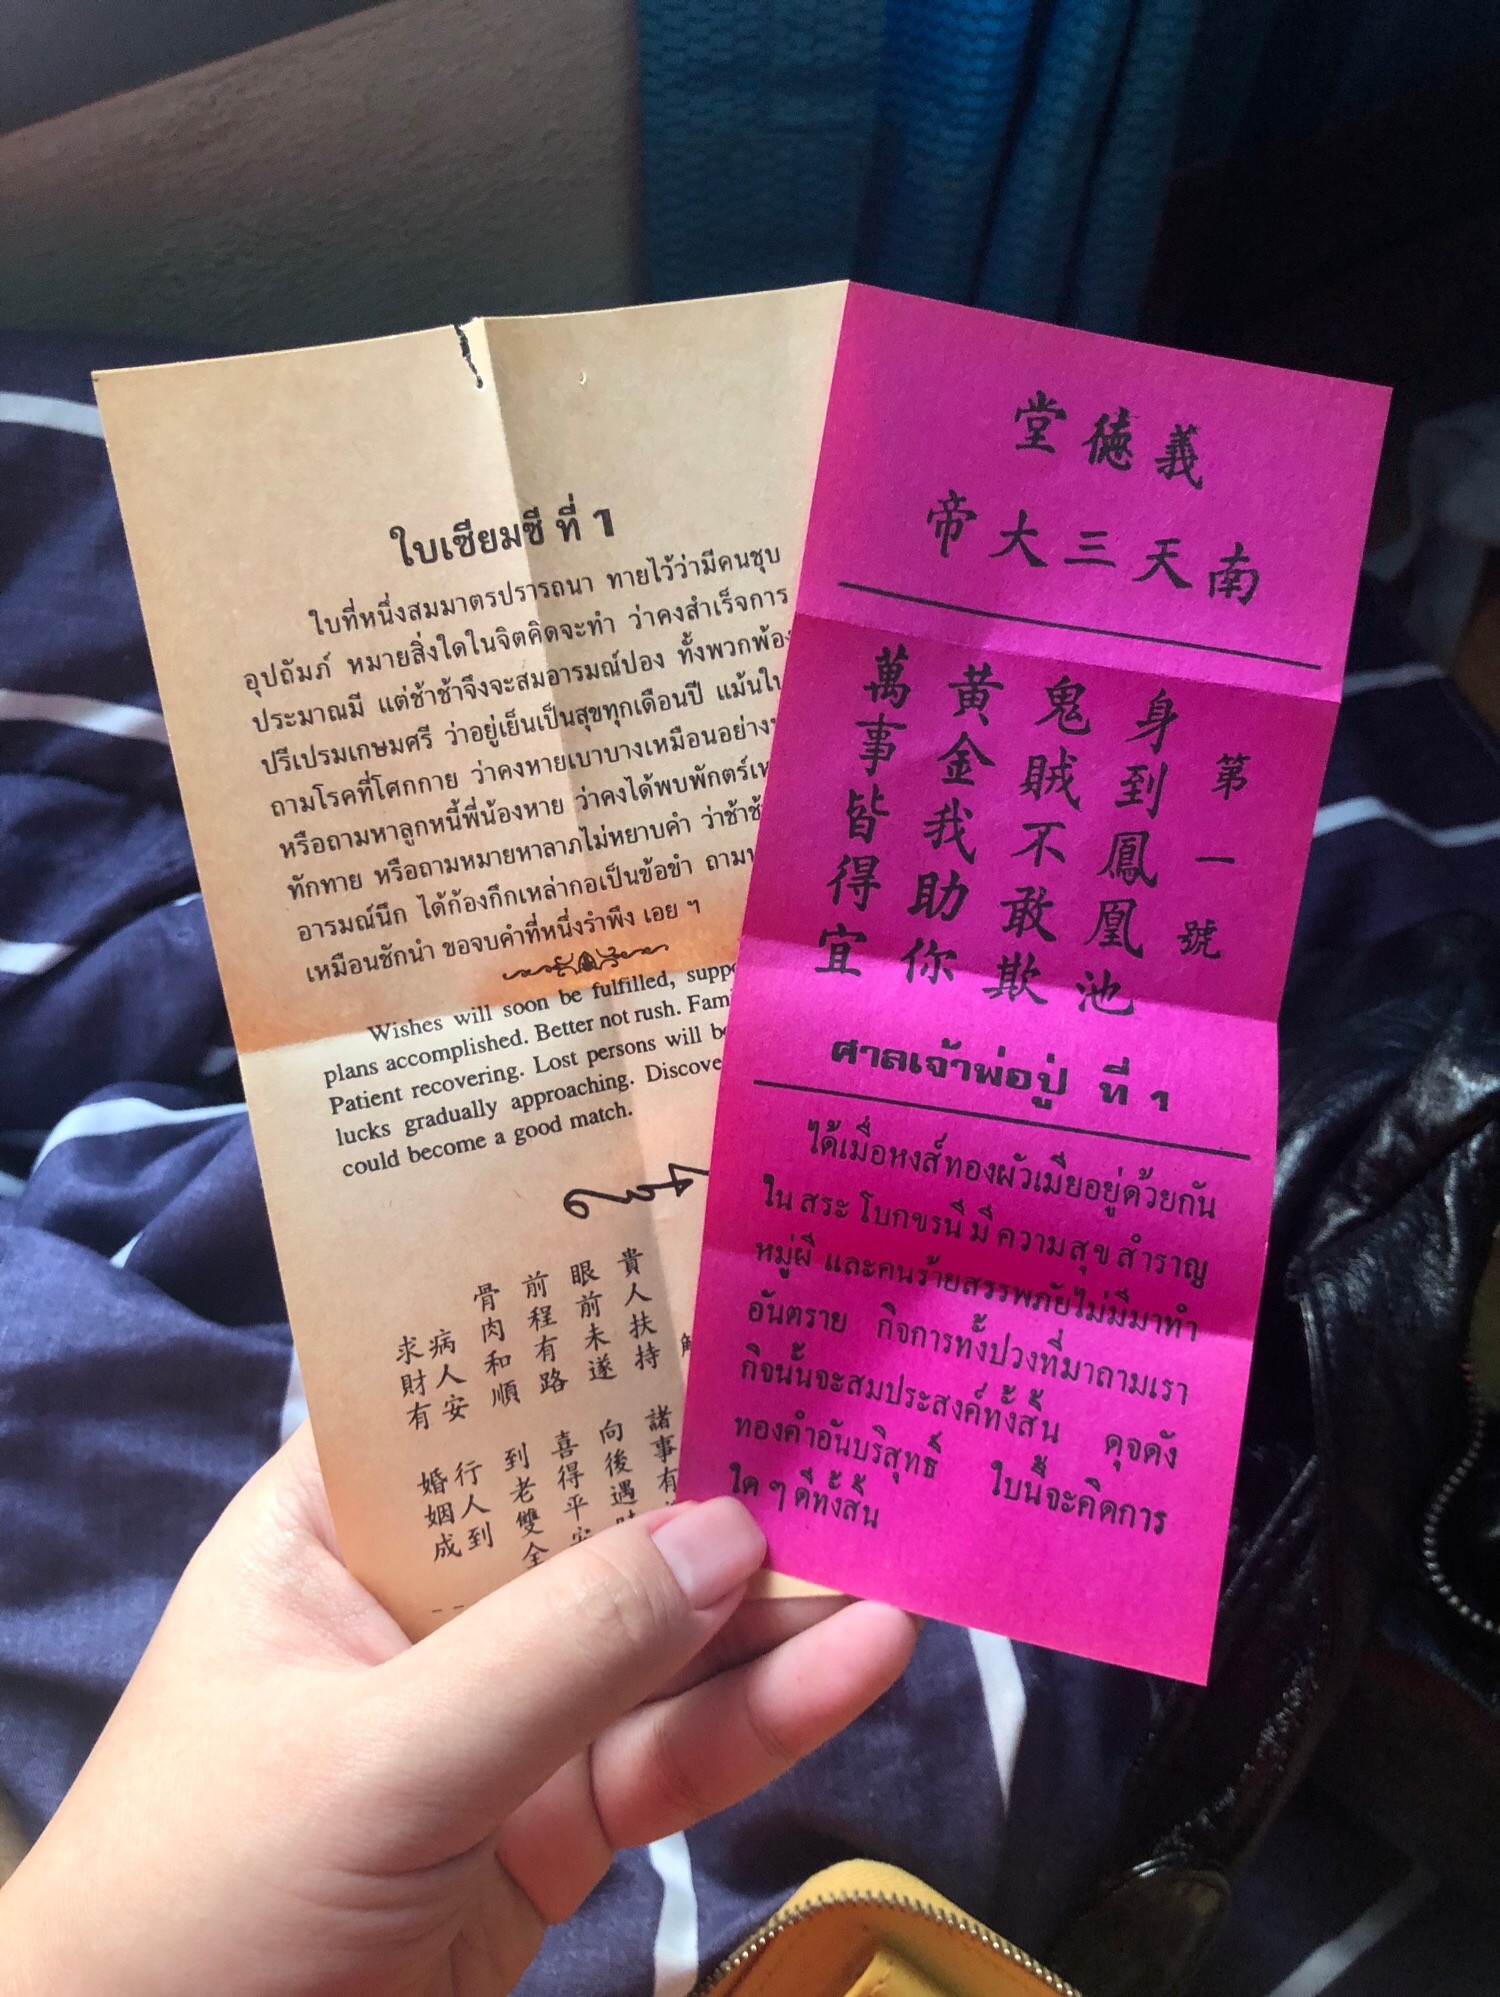 ใบเซียมซี ที่ 1
ใบที่หนึ่งสมมาตรปรารถนา ทายไว้ว่ามีคนชุบ
อุปถัมภ์ หมายสิ่งใดในจิตคิดจะทำ ว่าคงสำเร็จการ
ประมาณมี แต่ช้าช้าจึงจะสมอารมณ์ปอง ทั้งพวกพ้อง
ปรีเปรมเกษมศรี ว่าอยู่เย็นเป็นสุขทุกเดือนปี แม้นใน
ถามโรคที่โศกกาย ว่าคงหายเบาบางเหมือนอย่าง
หรือถามหาลูกหนี้พี่น้องหาย ว่าคงได้พบพักตร์
ทักทาย หรือถามหมายหาลาภไม่หยาบคำ ว่าช้า
อารมณ์นึก ได้ก้องกึกเหล่ากอเป็นข้อขำ ถาม
เหมือนชักนำ ขอจบคำที่หนึ่งรำพึง เอย ฯ
Wishes will soon be fulfilled,
plans accomplished. Better not rush.
Patient recovering. Lost persons will
lucks gradually approaching.
could become a good match.
貴人扶持 諸事有
眼前未遂 向後遇
前程有路 喜得平
骨肉和順 到老雙全
病人安 行人到
求財有 婚姻成
義德堂
南天三大帝
第一號
身到鳳凰池
鬼賊不敢欺
黃金我助你
萬事皆得宜
ศาลเจ้าพ่อปู่ ที่ 1
ได้เมื่อหงส์ทองผัวเมียอยู่ด้วยกัน
ใน สระ โบกขรนี มี ความ สุข สำราญ
หมู่ผี และคนร้ายสรรพภัยไม่มีมาทำ
อันตราย กิจการทั้งปวงที่มาถามเรา
กิจนั้นจะสมประสงค์ทั้งสิ้น ดุจดัง
ทองคำอันบริสุทธิ์ ใบนี้จะคิดการ
ใด ๆ ดีทั้งสิ้น